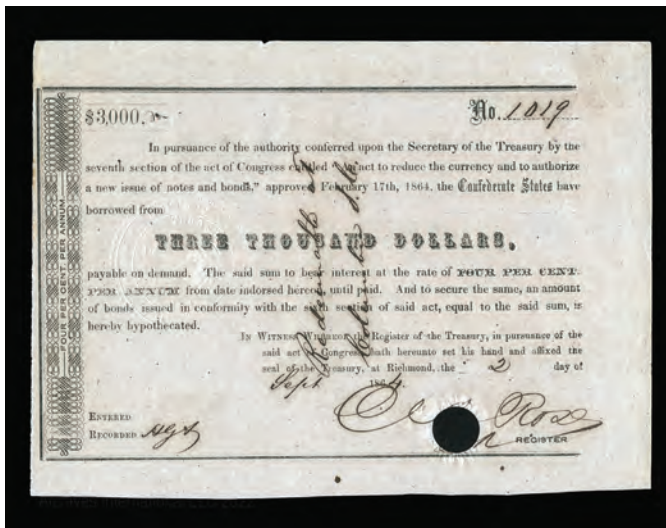 $3,000.
No. 1019
In pursuance of the authority conferred upon the Secretary of the Treasury by the
seventh section of the act of Congress entitled "An act to reduce the currency and to authorize
a new issue of notes and bonds," approved February 17th, 1864, the Confederate States have
borrowed from
THREE THOUSAND DOLLARS,
payable on demand. The said sum to bear interest at the rate of FOUR PER CENT.
PER ANNUM from date indorsed hereon, until paid. And to secure the same, an amount
of bonds issued in conformity with the sixth section of said act, equal to the said sum, is
hereby hypothecated.
IN WITNESS WHEREOF, the Register of the Treasury, in pursuance of the
said act of Congress, hath hereunto set his hand and affixed the
seal of the Treasury, at Richmond, the 2 day of
Sept 1864.
ENTERED
RECORDED
Rose
REGISTER
FOUR PER CENT. PER ANNUM
Redeemable at
Columbia S.C.